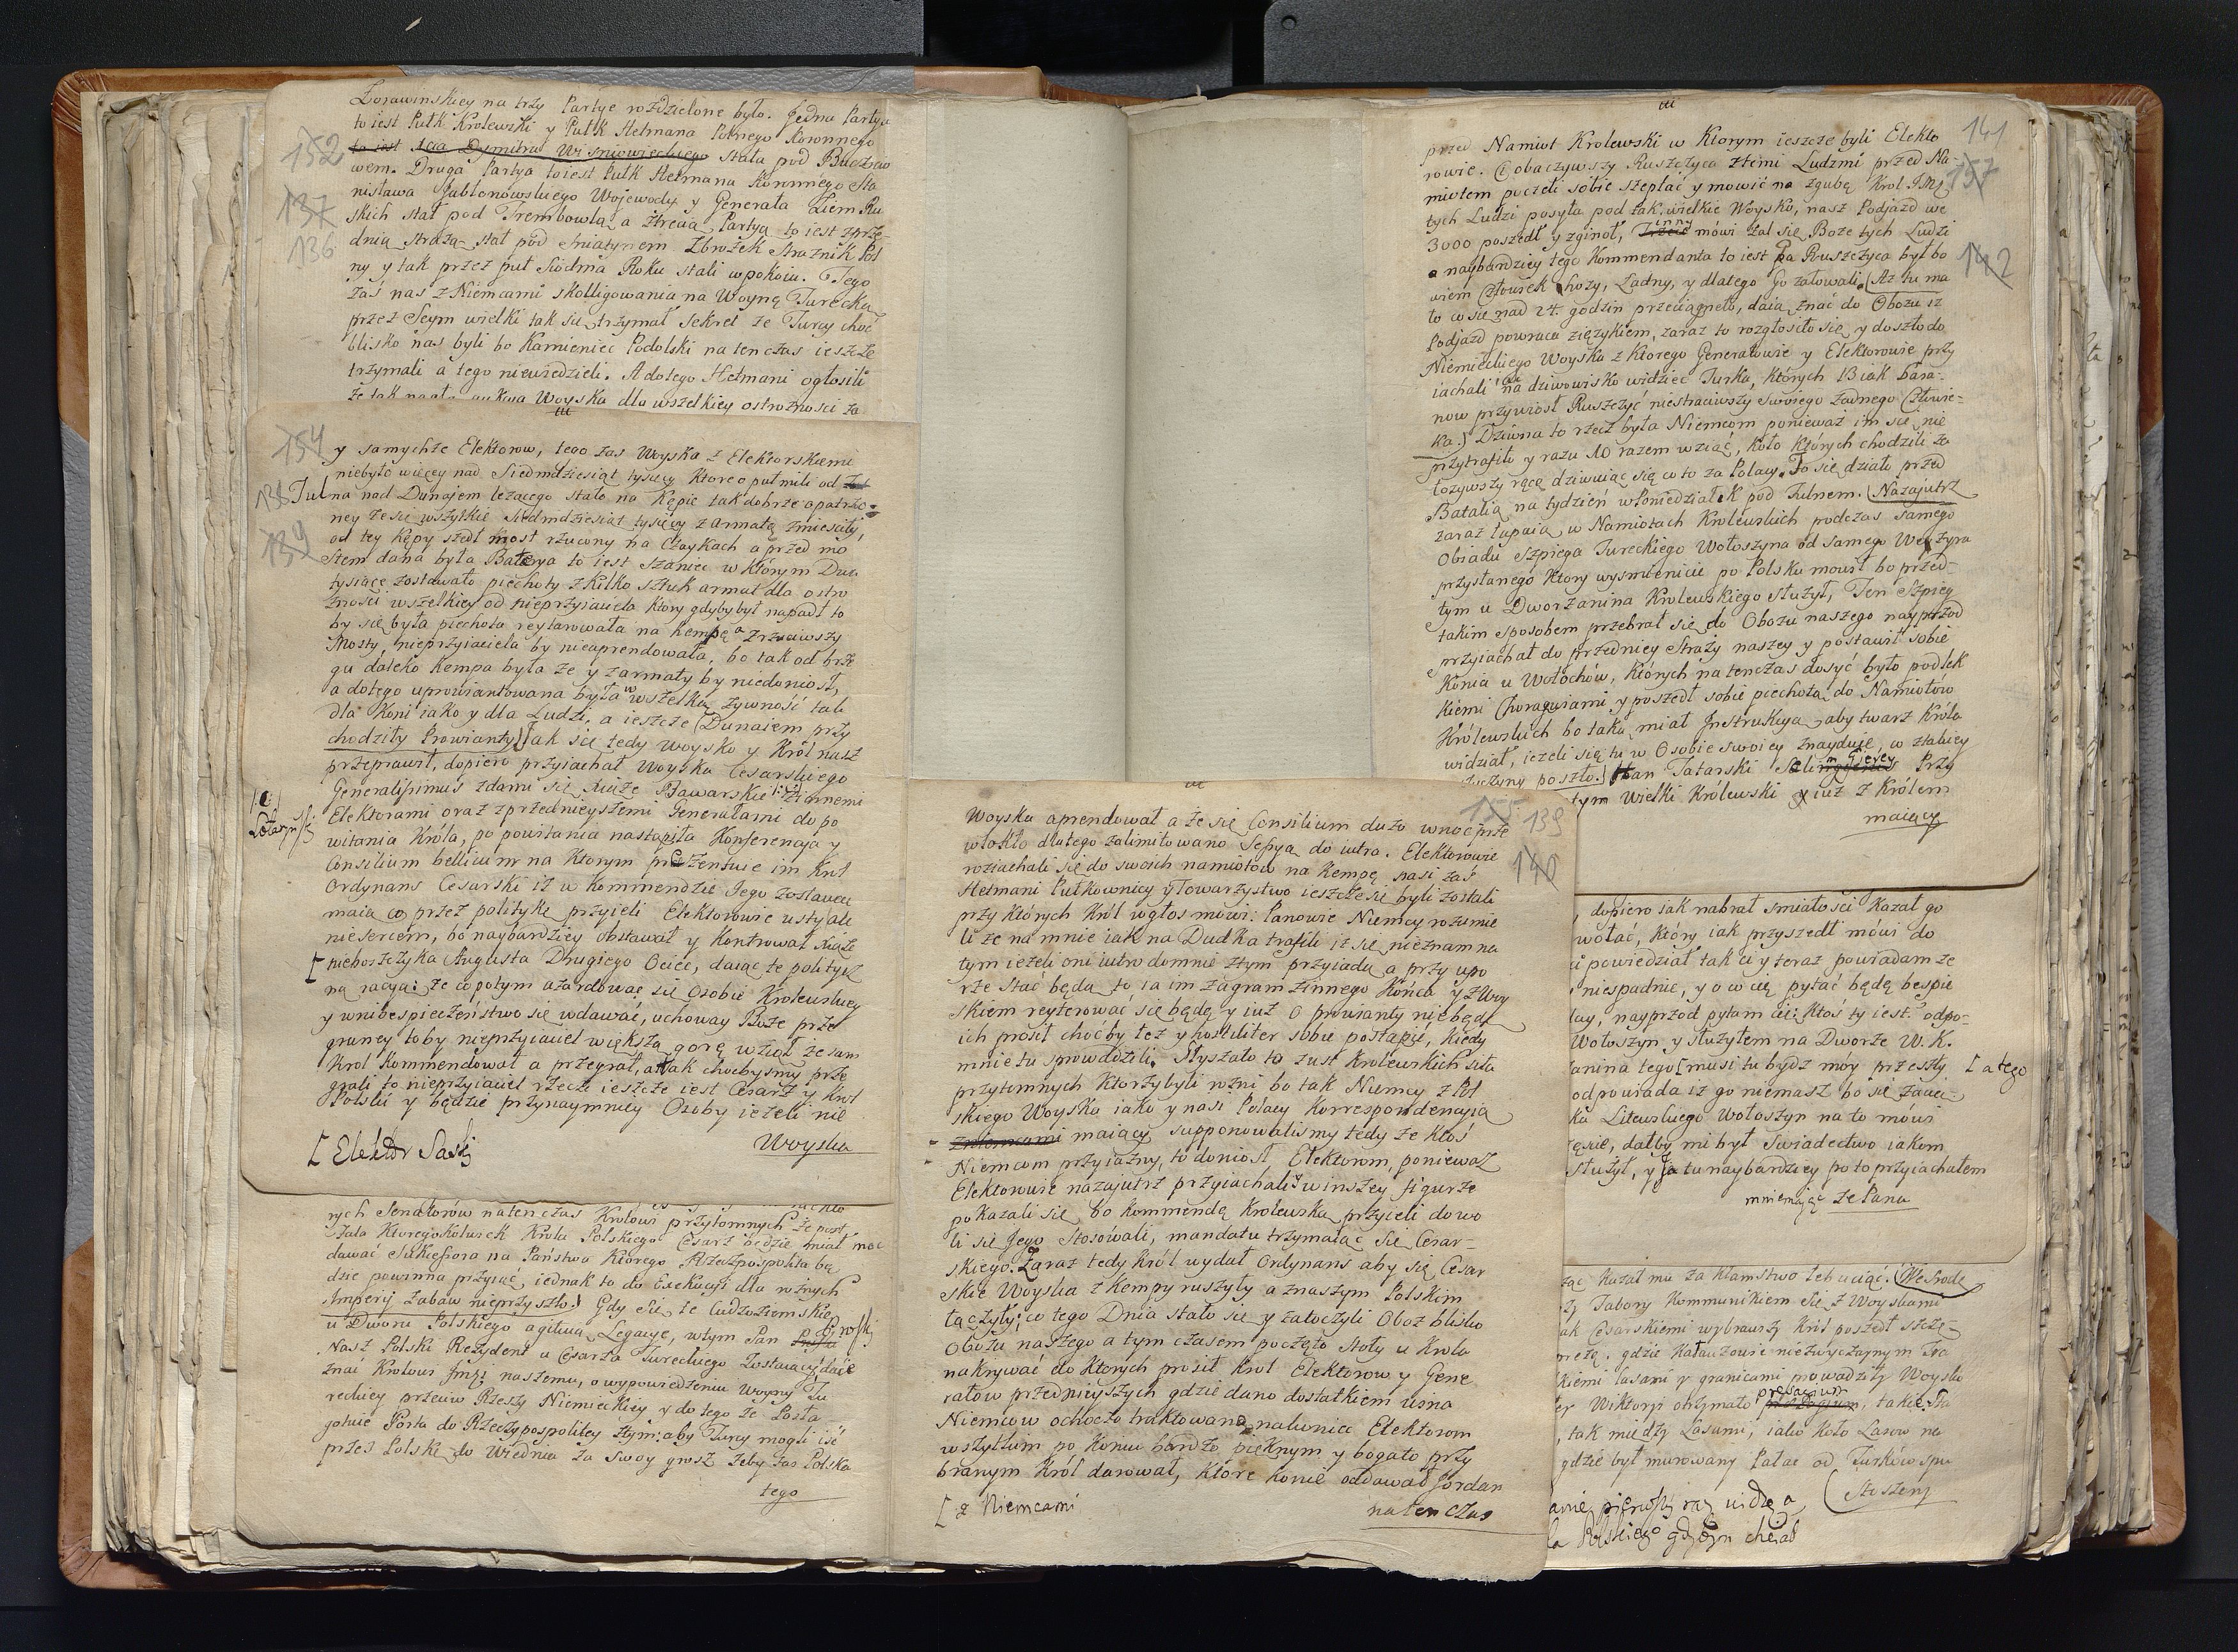 Zorawinskiey na trzy Partye rozdzielone było. Jedna Partya
to iest Pułk Krolewski y Pułk Hetmana Polnego Koronnego
152
to iest Xcia Dymitra Wisniowieckiego stała pod Buczaczo
wem. Druga Partya to iest Pułk Hetmana Koronnego Sta
nisława Jabłonowskiego Wojewody y Generała Ziem Ru
137
skich stał pod Trembowlą a trzecia Partya to iest z prze
136
dnią strażą stał pod Sniatynem Zbrożek Straznik Pol
ny y tak przez puł Siodma Roku stali w pokoiu. Tego
zaś nas z Niemcami skolligowania na Woynę Turecką
przez Seym wielki tak się trzymał sekret ze Turcy choć
blisko nas byli bo Kamieniec Podolski na ten czas ieszcze
trzymali a tego niewiedzieli. A do tego Hetmani ogłosili
że tak nagła Woyska dla wszelkiey ostrożnosci za
154
y samychże Elektorow, tego zas Woyska z Elektorskiemi
niebyło więcey nad Siedmdziesiąt tysięcy Ktore o puł mili od
138 Tulna nad Dunajem leżącego stało na Kępie tak dobrze opatrzo-
ney że się wszytkie siedmdziesiąt tysięcy z Armatą zmiesciły,
139
od tey Kępy szedł most rzucony na Czaykach a przed mo
stem dana była Baterya to iest szaniec w Ktorym Dwa
tysiące zostawało piechoty z kilko sztuk armat dla ostro
znosci wszelkiey od nieprzyiaciela Ktory gdyby był napadł to
by się była piechota reyterowała na kempę a zrzuciwszy
Mosty, nieprzyiaciela by nieaprendowała, bo tak od brze
gu daleko Kempa była że y z armaty by niedoniosł,
a dotego uprowiantowana była w wszelką zywność tak
dla Koni iako y dla Ludzi, a ieszcze Dunaiem przy
chodziły Prowianty] Jak się tedy Woysko y Król nasz
przeprawił, dopiero przyiachał Woyska Cesarskiego
Generalissimus zdami się Xiąże Bawarskie z innemi
Elektorami oraz z przednieyszemi Generałami do po
witania Króla, po powitaniu nastąpiła Konferencya y
Consilium bellicum na Ktorym prezentuie im Krol
Ordynans Cesarski iż w Kommendzie Jego zostawać
maią co przez politykę przyieli Elektorowie usty ale
nie sercem, bo naybardziey obstawał y Kontrował Xiąże
[nieboszczyka Augusta Drugiego Ociec, daiąc te polityc
ną racyą: że co potym azardować się Osobie Krolewskiey
y w niebespieczeństwo się wdawać, uchoway Boże prze
graney toby nieprzyiaciel większą gorę wziął że sam
Krol Kommendował a przegrał, a tak chocbysmy prze
grali to nieprzyiaciel rzecze ieszcze iest Cesarz y Krol
Polski y będzie przynaymniey Osoby ieżeli nie
Woyska
[ Elektor Saski
rych Senatorów natenczas Krolowi przytomnych że post
dawać Sukcessora na Państwo Ktorego Rzeczpospolita bę
dzie powinna przyiąć, iednak to do Exekucyi dla rożnych
Imperij zabaw nieprzyszło.] Gdy się te Cudzoziemskie
u Dworu Polskiego agituią Legacye, wtym Pan
Nasz Polski Rezydent u Cesarza Tureckiego zostaiący daie
znać Krolowi Jmci naszemu, o wypowiedzeniu Woyny Tu
reckiey przeciw Rzeszy Niemieckiey y do tego że Posła
gotuie Porta do Rzeczypospolitey z tym: aby Turcy mogli iść
przez Polskę do Wiednia za swoy grosz żeby zas Polska
tego
155 139
Woyska aprendował a że się Consilium dużo w noc prze
wlokło dlatego zalimitowano Sessyą do iutra. Elektorowie
140
roziachali się do swoich namiotow na Kempę nasi zaś
Hetmani Pułkownicy y Towarzystwo ieszcze się byli zostali
przy Których Król w głos mowi: Panowie Niemcy rozumie
li że na mnie iak na Dudka trafili iż się nieznam na
tym ieżeli oni iutro do mnie z tym przyiadą a przy upo
rze stać będą to ia im zagram z innego Końca y z Woy
skiem reyterować się będę y iuż o prowianty nie będę
ich prosił choćby też y hostiliter sobie postąpić, kiedy
mnie tu sprowadzili. Słyszało to z ust Krolewskich siła
przytomnych Ktorzy byli rożni bo tak Niemcy z Pol
skiego Woyska iako y nasi Polacy Korrespondencyią
z niemcami maiący supponowalismy tedy że Ktoś
Niemcom przyiazny, to doniosł Elektorom, ponieważ
Elektorowie nazajutrz przyiachali y w inszey figurze
pokazali się, bo Kommendę Krolewską przyieli do wo
li się Jego stosowali, mandatu trzymaiąc się Cesar-
skiego. Zaraz tedy Król wydał Ordynans aby się Cesar
skie Woyska z Kempy ruszyły a z naszym Polskim
łączyły: co tego Dnia stało się y zatoczyli Oboz blisko
Obozu naszego a tym czasem poczęto stoły u Krola
nakrywać do Ktorych prosił Krol Elektorow y Gene
rałow przednieyszych gdzie dano dostatkiem wina
Niemcow ochoczo traktowano, nakoniec Elektorom
wszytkim po Koniu bardzo pięknym y bogato przy
branym Król darował, Które konie oddawał Jordan
[ z Niemcami
natenczas
141
przed Namiot Krolewski w Ktorym ieszcze byli Elekto
rowie. Obaczywszy Ruszczyca z temi Ludzmi przed Na-
157
miotem poczeli sobie szeptać y mowić na zgubę Krol Jmc
tych Ludzi posyła pod tak wielkie Woysko, nasz Podjazd we
3000 poszedł y zginoł, inny mowi żal się Boże tych Ludzi
a naybardziey tego Kommendanta to iest Pa Ruszczyca był bo
142
wiem Człowiek hoży, Ladny, y dlatego Go żałowali. Aż tu ma
to co się nad 24. godzin przeciągneło, daią znać do Obozu iż
Podjazd powraca z ięzykiem, zaraz to rozgłosiło się y doszło do
Niemieckiego Woyska z Ktorego Generałowie y Elektorowie przy
iachali na dziwowisko widzieć Turka, których 13 iak bara-
now przywiosł Ruszczyć niestraciwszy swoiego żadnego Człowie-
ka.] Dziwna to rzecz była Niemcom ponieważ im się nie
przytrafiło y razu 10 razem wziąć, Koło Których chodzili za
łożywszy ręce dziwuiąc się co to za Polacy. To się działo przed
Batalią na tydzień w Poniedziałek pod Tulnem. Nazajutrz
zaraz łapaią w Namiotach Krolewskich podczas samego
Obiadu szpiega Tureckiego Wołoszyna od samego Wezyra
przysłanego Ktory wysmienicie po Polsku mowił bo przed-
tym u Dworzanina Krolewskiego służył, Ten Szpieg
takim sposobem przebrał się do Obozu naszego nayprzod
przyiachał do przedniey Straży naszey y postawił sobie
Konia u Wołochów, Których natenczas dosyć było pod lek
kiemi Chorągwiami y poszedł sobie piechotą do Namiotów
Królewskich bo taką miał Instrukcyą aby twarz Króla
widział, ieżeli się tu w Osobie swoiey znayduie, w słabiey
poszło.] Han Tatarski Selim Gierey Przy
tym Wielki Królewski y iuż z Królem
maiący
, dopiero iak nabrał smiałosci Kazał go
wołać, Który iak przyszedł mówi do
powiedział tak ci y teraz powiadam że
niespadnie, y o co cię pytać będę bespie
nayprzod pytam ci: Ktoś ty iest. odpo-
Wołoszyn y służyłem na Dworze W. K.
anina tego [musi tu bydz móy przeszły [ a tego
odpowiada iż go niemasz bo się zacią-
Litewskiego Wołoszyn na to mówi
dałby mi był swiadectwo iakom
służył, y ja tu naybardziey po to przyiachałem
mniemając że Pana
Kazał mu za kłamstwo łeb uciąć. We srode
Tabory Kommunikiem się z Woyskami
Cesarskiemi wybrawszy Król poszedł
gdzie Kałauzowie niezwyczaynym Tra
kiemi lasami y granicami prowadzili Woysko
Wiktoryi otrzymało presagium, takie Ta
, tak między Lasami, iako koło Lasow na
gdzie był murowany Pałac od Turków spu
stoszeny
pierwszy raz widzę a
Polskiego gdym chciał